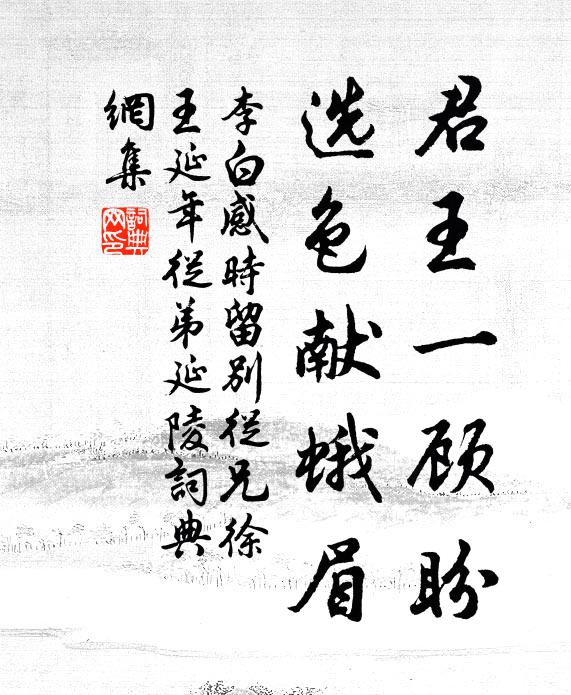 君王一顾盼
选色献蛾眉
李白感時留别從兄徐
王延年從弟延陵詞典
網集
詞典
网印